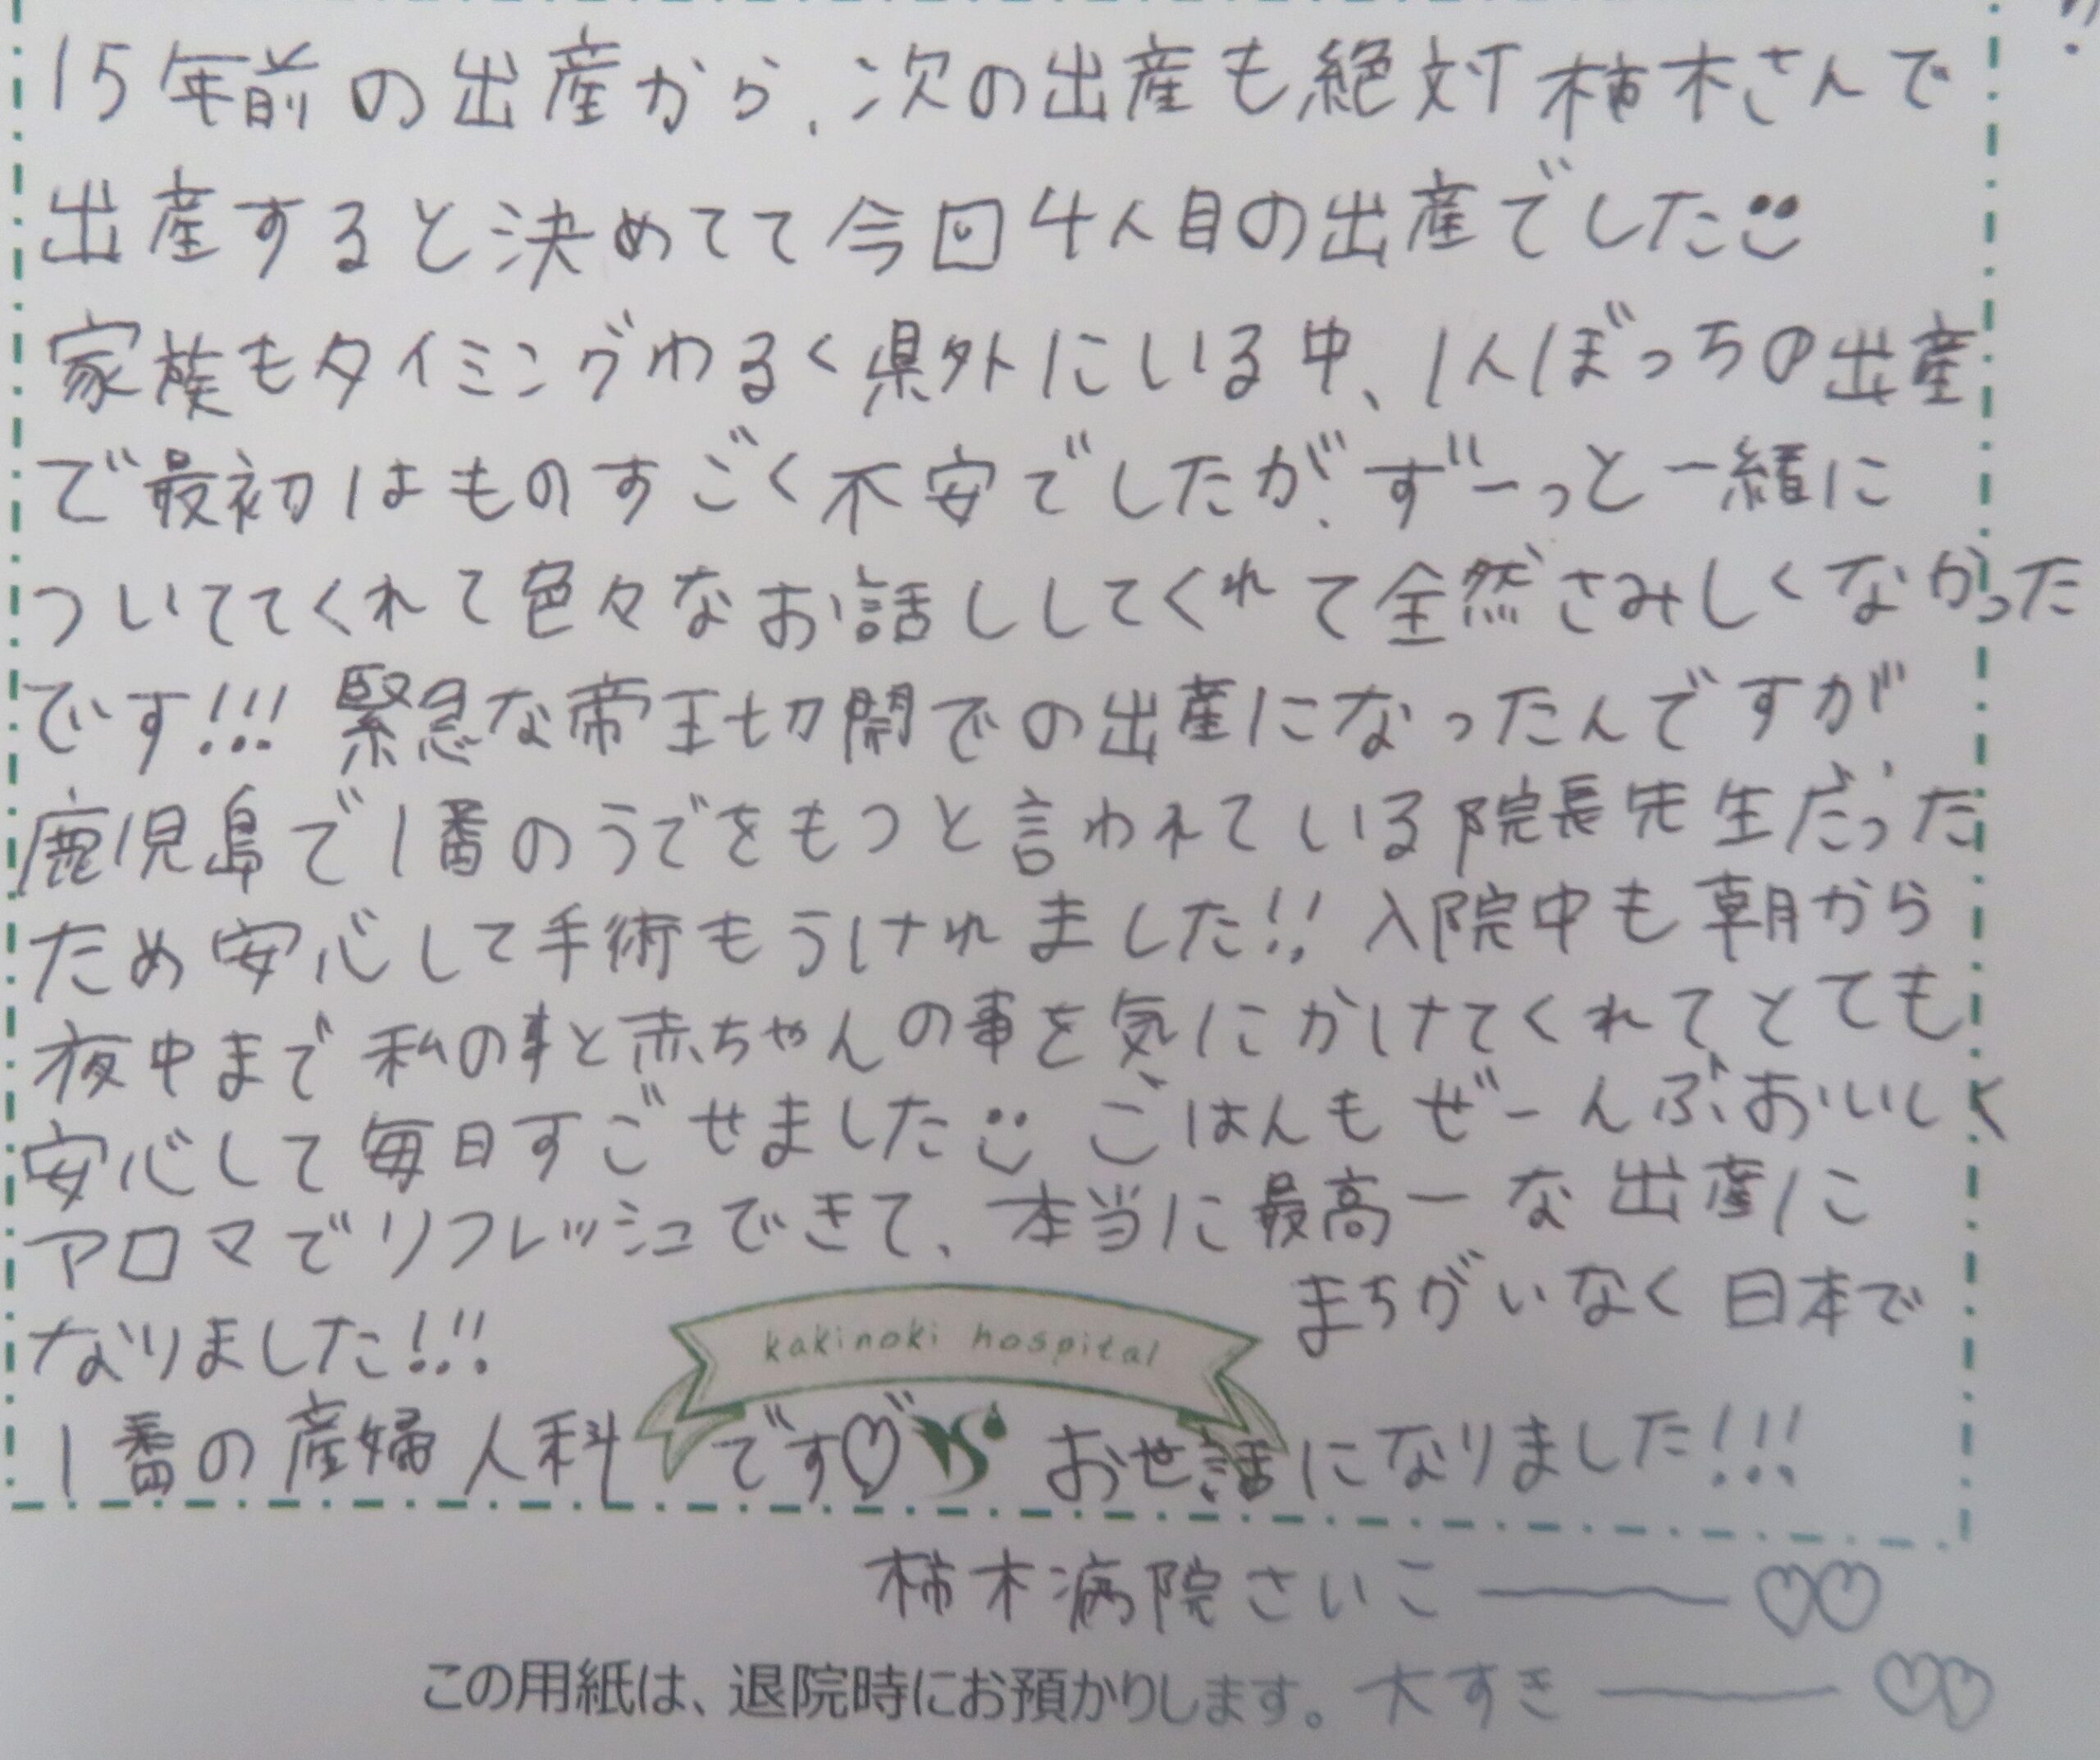 15年前の出産から、次の出産も絶対柿木さんで
出産すると決めてて今回4人目の出産でした
家族もタイミングわるく県外にいる中、1人ぼっちの出産
で最初はものすごく不安でしたが、ずーっと一緒に
ついててくれて色々なお話ししてくれて全然さみしくなかった
です!!! 緊急な帝王切開での出産になったんですが
鹿児島で1番のうでをもつと言われている院長先生だった
ため安心して手術もうけれました!! 入院中も朝から
夜中まで私の事と赤ちゃんの事を気にかけてくれてとても
安心して毎日すごせました ごはんもぜーんぶおいしく
アロマでリフレッシュできて、本当に最高ーな出産に
なりました!!!
kakinoki hospital
まちがいなく日本で
1番の産婦人科です♡ お世話になりました!!!
柿木病院さいこーーー♡♡
この用紙は、退院時にお預かりします。
大すきーーー♡♡